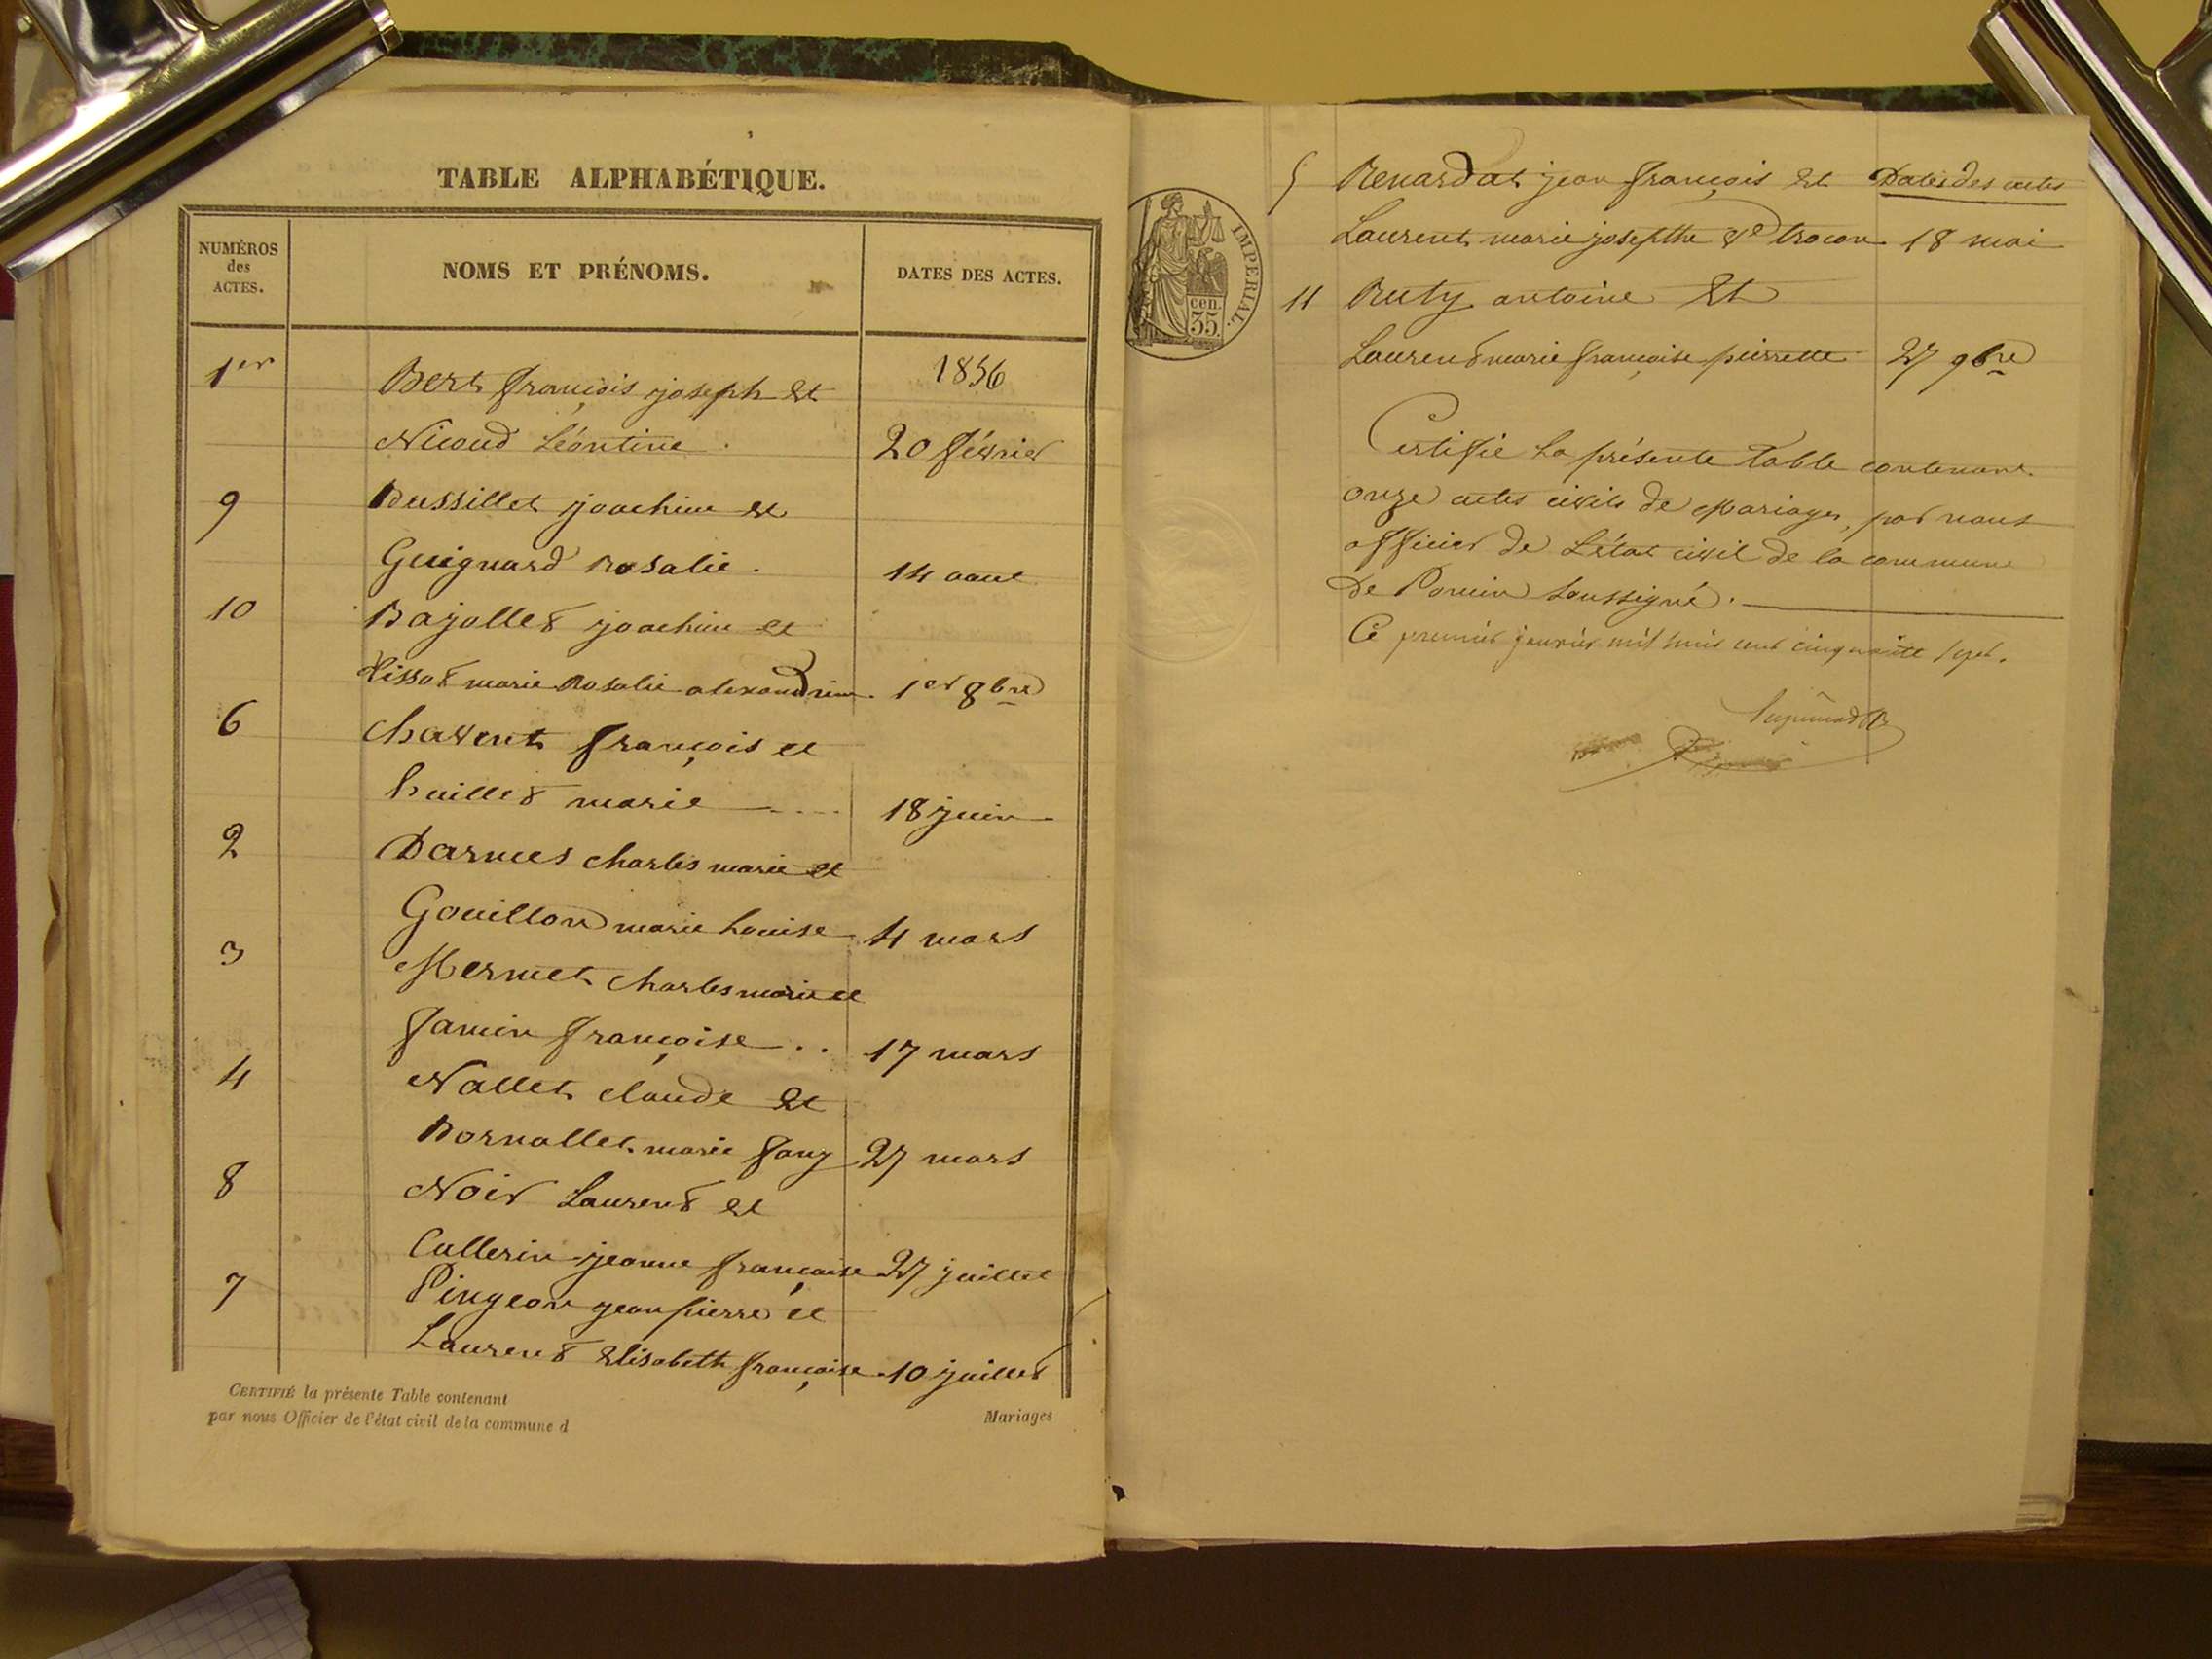 TABLE ALPHABÉTIQUE.
NUMÉROS
des
ACTES.
NOMS ET PRÉNOMS.
DATES DES ACTES.
1er Bert françois joseph et 1856
Nicoud Léontine . 20 février
9 Bussillet joachim et
Guignard Rosalie . 14 aout
10 Bajollet joachim et
Tissot marie Rosalie alexandrine . 1er 8bre
6 Chavent françois et
huillet marie 18 juin
2 Darmes charles marie et
Gouillon marie Louise 4 mars
3 Mermet charles marie et
Jamin françoise . . 17 mars
4 Nallet claude et
Bornallet marie fany 27 mars
8 Noir Laurent et
Cullerin jeanne françoise 27 juillet
7 Pingeon jean pierre et
Laurent Elisabeth françoise . 10 juillet
CERTIFIÉ la présente Table contenant
Mariages
par nous Officier de l'état civil de la commune d
IMPERIAL.
cen.
35.
5 Renardat jean françois et Dates des actes
Laurent marie josepthe Ve 18 mai
11 Ruty antoine Et
Laurent marie françoise pierrette 27 9bre
Certifié La présente Table contenant
onze actes civils de Mariages, par nous
officier de L'état civil de la commune
De Poncin Soussigné .
Ce premier janvier mil huit cent cinquante sept .